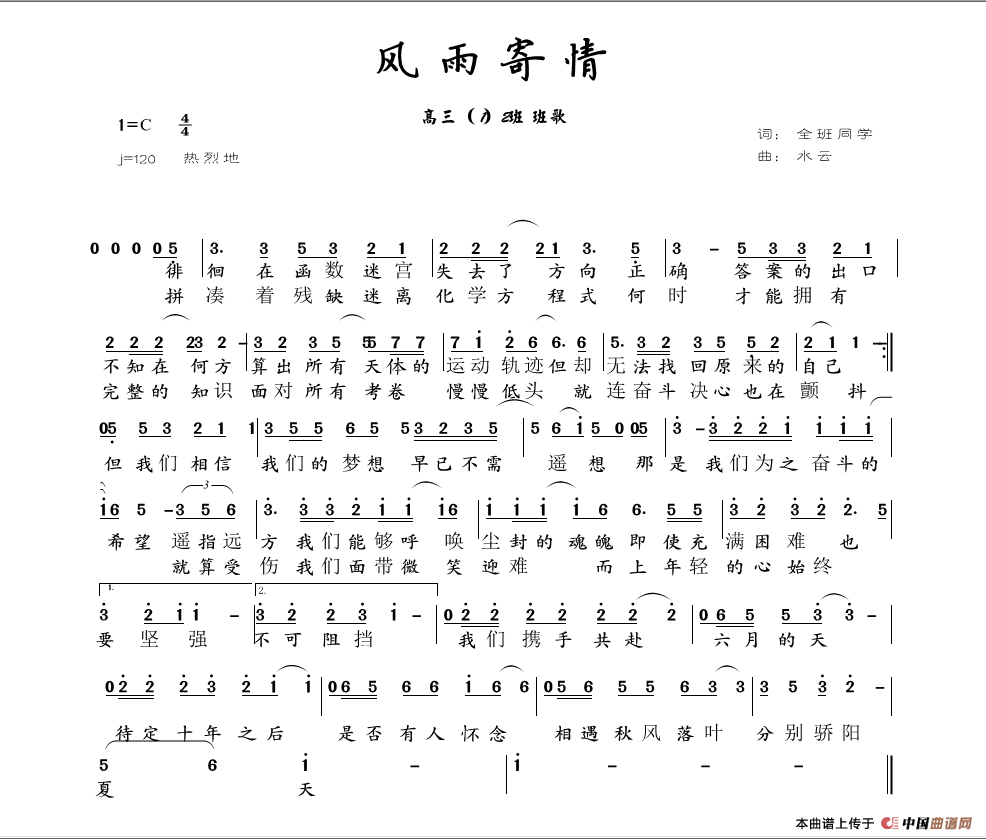 风雨寄情
高三（1）2班 班歌
1=C 4/4
词：全班同学
j=120 热烈地
曲：水云
0 0 0 0 5 3. 3 5 3 2 1 2 2 2 2 1 3. 5 3 - 5 3 3 2 1
徘徊在函数迷宫失去了方向正确答案的出口
拼凑着残缺迷离化学方程式何时才能拥有
2 2 2 2 3 2 - 3 2 3 5 5 7 7 7 i 2 6 6. 6 5. 3 5 5 2 2 1 1 -
不知在何方算出所有天体的运动轨迹但却无法找回原来的自己
完整的知识面对所有考卷慢慢低头就连奋斗决心也在颤抖
0 5 5 3 2 1 1 3 5 5 6 5 5 3 2 3 5 5 6 i 5 0 0 5 3 - 3 2 2 i i i i
但我们相信我们的梦想早已不需遥想那是我们为之奋斗的
i 6 5 - 3 5 6 3. 3 3 2 i i i 6 i i i i 6 6. 5 5 3 2 3 2 2. 5
3
希望遥指远方我们能够呼唤尘封的魂魄即使充满困难也
就算受伤我们面带微笑迎难而上年轻的心始终
1. 2.
3 2 i i - 3 2 2 3 i - 0 2 2 2 2 2 2 2 0 6 5 5 3 3
要坚强不可阻挡我们携手共赴六月的天
0 2 2 2 3 2 i i 0 6 5 6 6 i 6 6 0 5 6 5 5 6 3 3 3 5 3 2 -
待定十年之后是否有人怀念相遇秋风落叶分别骄阳
5 6 i - i - - -
夏天
本曲谱上传于 中国曲谱网